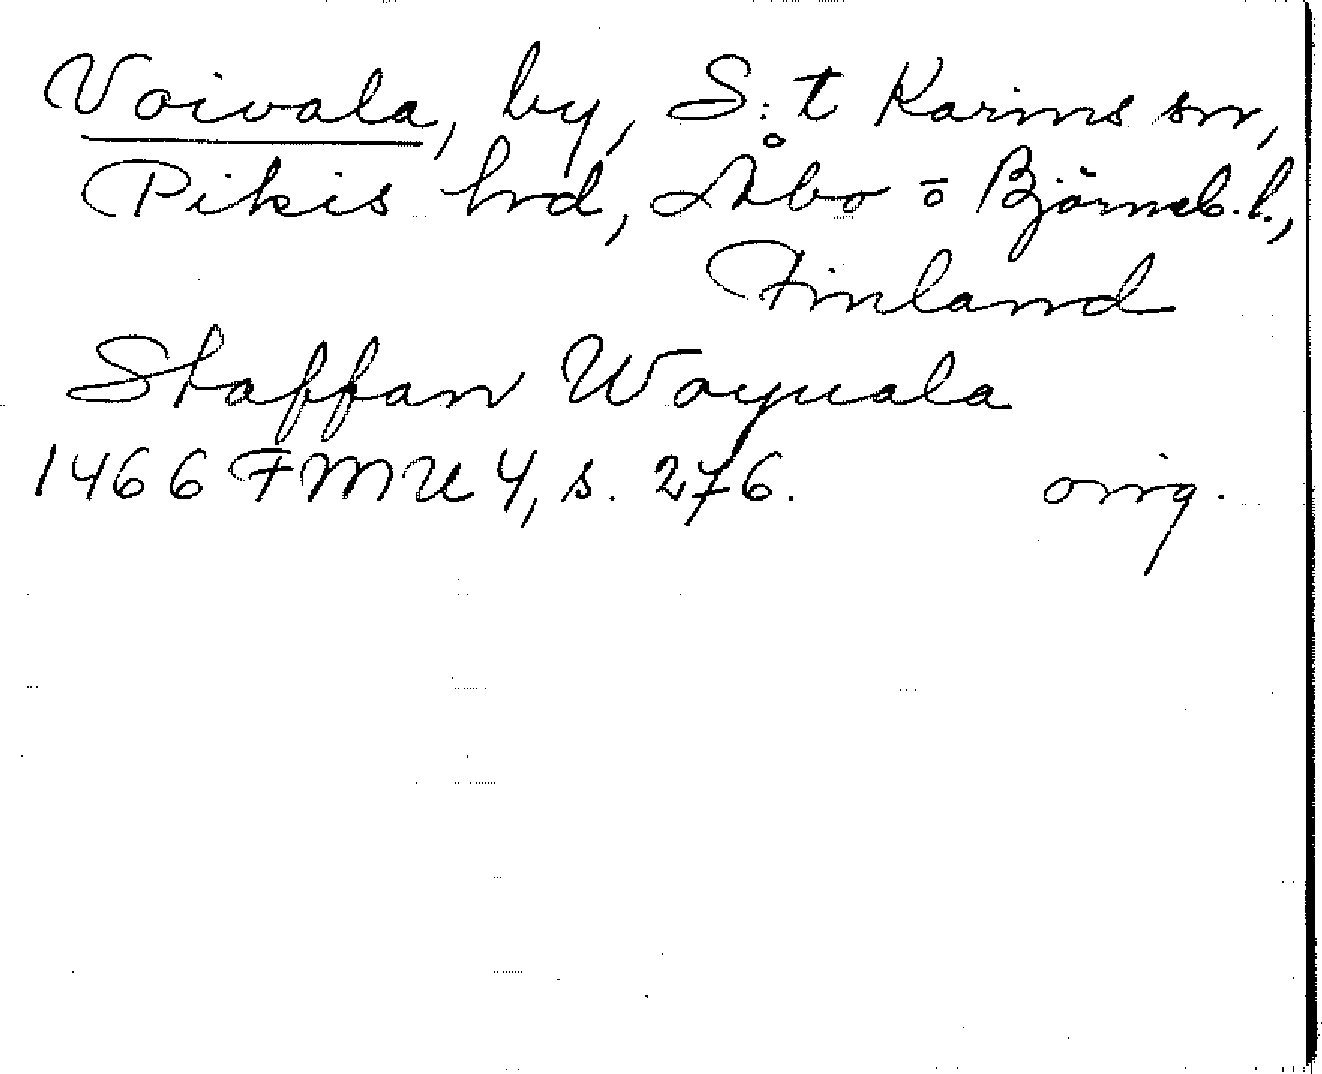 Voivala, by, S:t Karins sn,
Pikis hrd, Åbo o Björneb. l.,
Finland
Staffan Woyuala
1466 FMU 4, s. 276. orig.